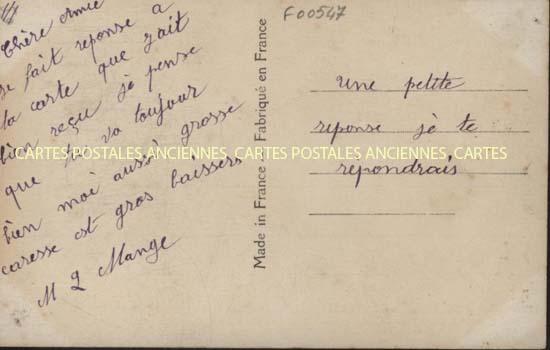 Chère Amie
je fait reponse a
ta carte que j'ait
bien reçu je pense
que tu va toujour
bien moi aussi grosse
caresse est gros baissers
M L Mange
Made in France - Fabriqué en France
F00547
une petite
reponse je te
répondrais
CARTES POSTALES ANCIENNES, CARTES POSTALES ANCIENNES, CARTES